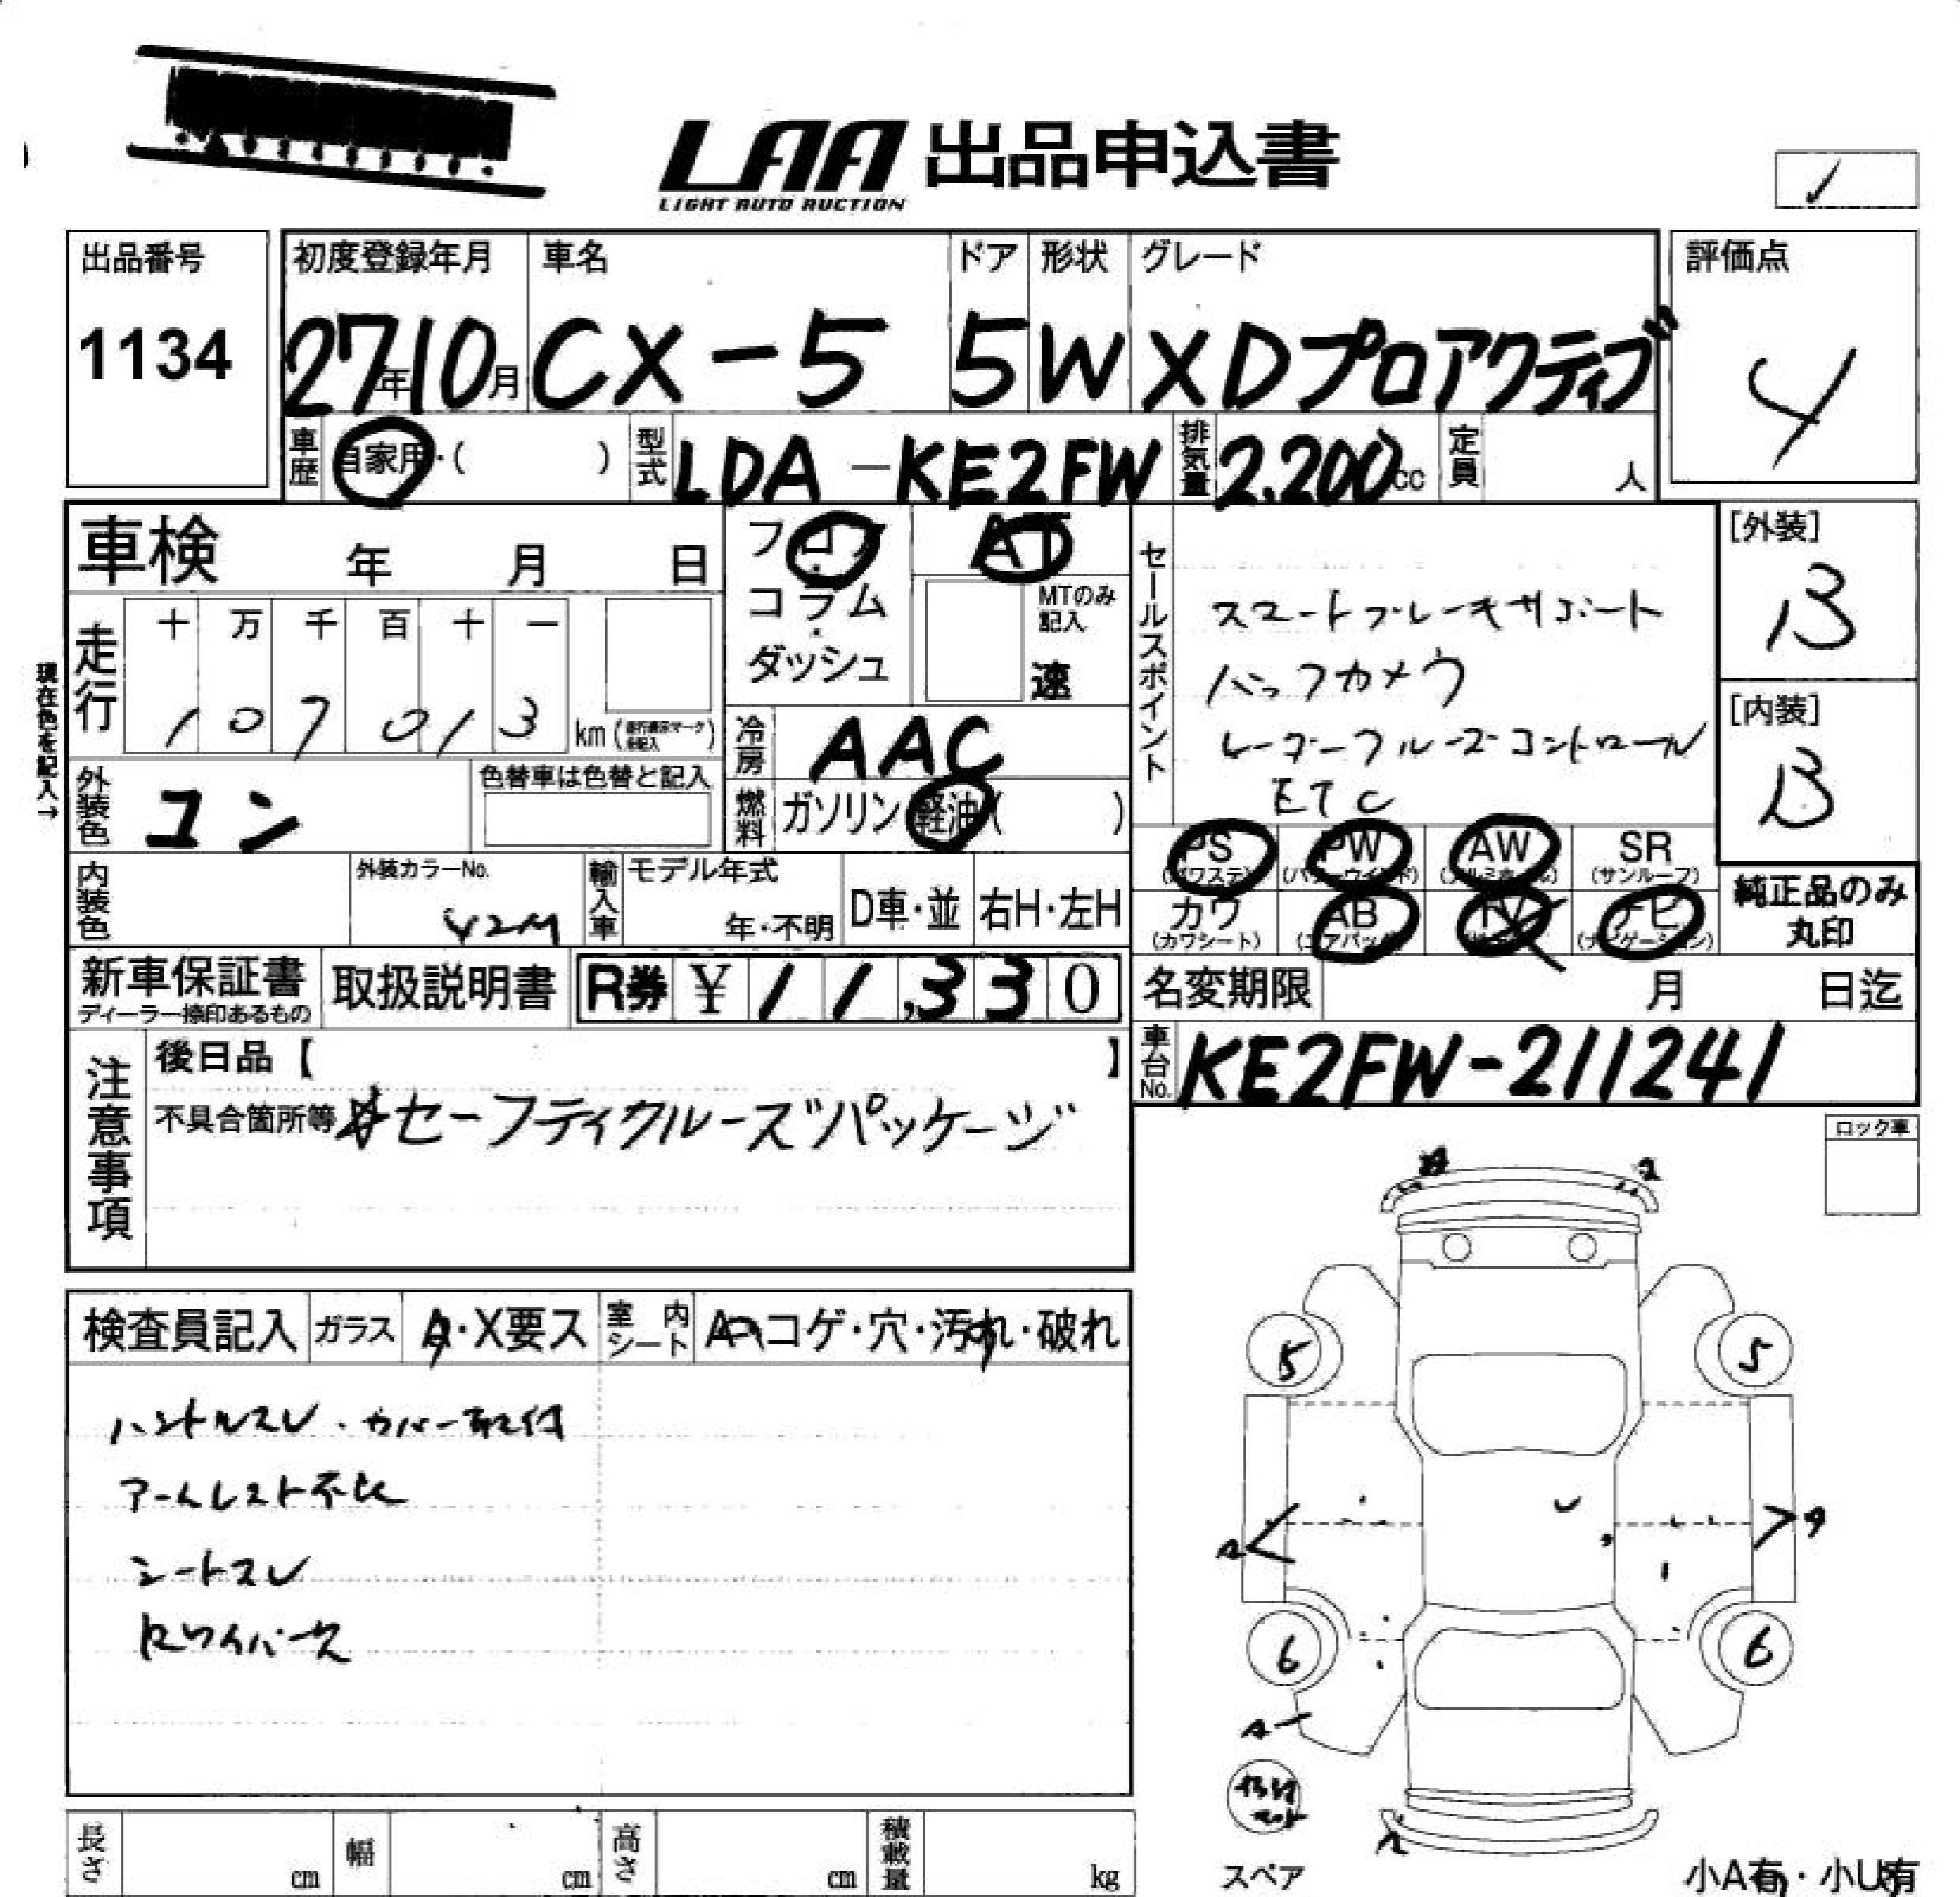 LAA 出品申込書
LIGHT AUTO AUCTION
出品番号
1134
初度登録年月 車名 ドア 形状 グレード
27年10月 CX-5 5 W XDプロアクティブ
評価点
4
車歴 自家用・( ) 型式 LDA-KE2FW 排気量 2.200cc 定員 人
車検 年 月 日
フロア・コラム・ダッシュ
AT
MTのみ記入
速
走行 十 万 千 百 十 一
107013 km
現在色を記入→
冷房 AAC
外装色 コン 色替車は色替と記入
燃料 ガソリン 軽油 ( )
セールスポイント
スマートブレーキサポート
バックカメラ
レーダークルーズコントロール
ETC
[外装]
B
[内装]
B
PS PW AW SR
(パワステ) (パワーウインド) (アルミホイール) (サンルーフ)
カワ AB TV ナビ
(カワシート) (エアバッグ) (ナビゲーション)
純正品のみ
丸印
内装色 外装カラーNo. 42M 輸入車 モデル年式 年・不明 D車・並 右H・左H
新車保証書 取扱説明書 R券 ¥11,330
ディーラー捺印あるもの
名変期限 月 日迄
車台No. KE2FW-211241
注意事項
後日品【 】
不具合箇所等 セーフティクルーズパッケージ
ロック車
検査員記入 ガラス ・X要ス 室内シート コゲ・穴・汚れ・破れ
ハンドルスレ・カバー取付
アームレスト不良
シートスレ
Rワイパー欠
5 5
6 6
スペア
小A有・小U有
長さ cm 幅 cm 高さ cm 積載量 kg